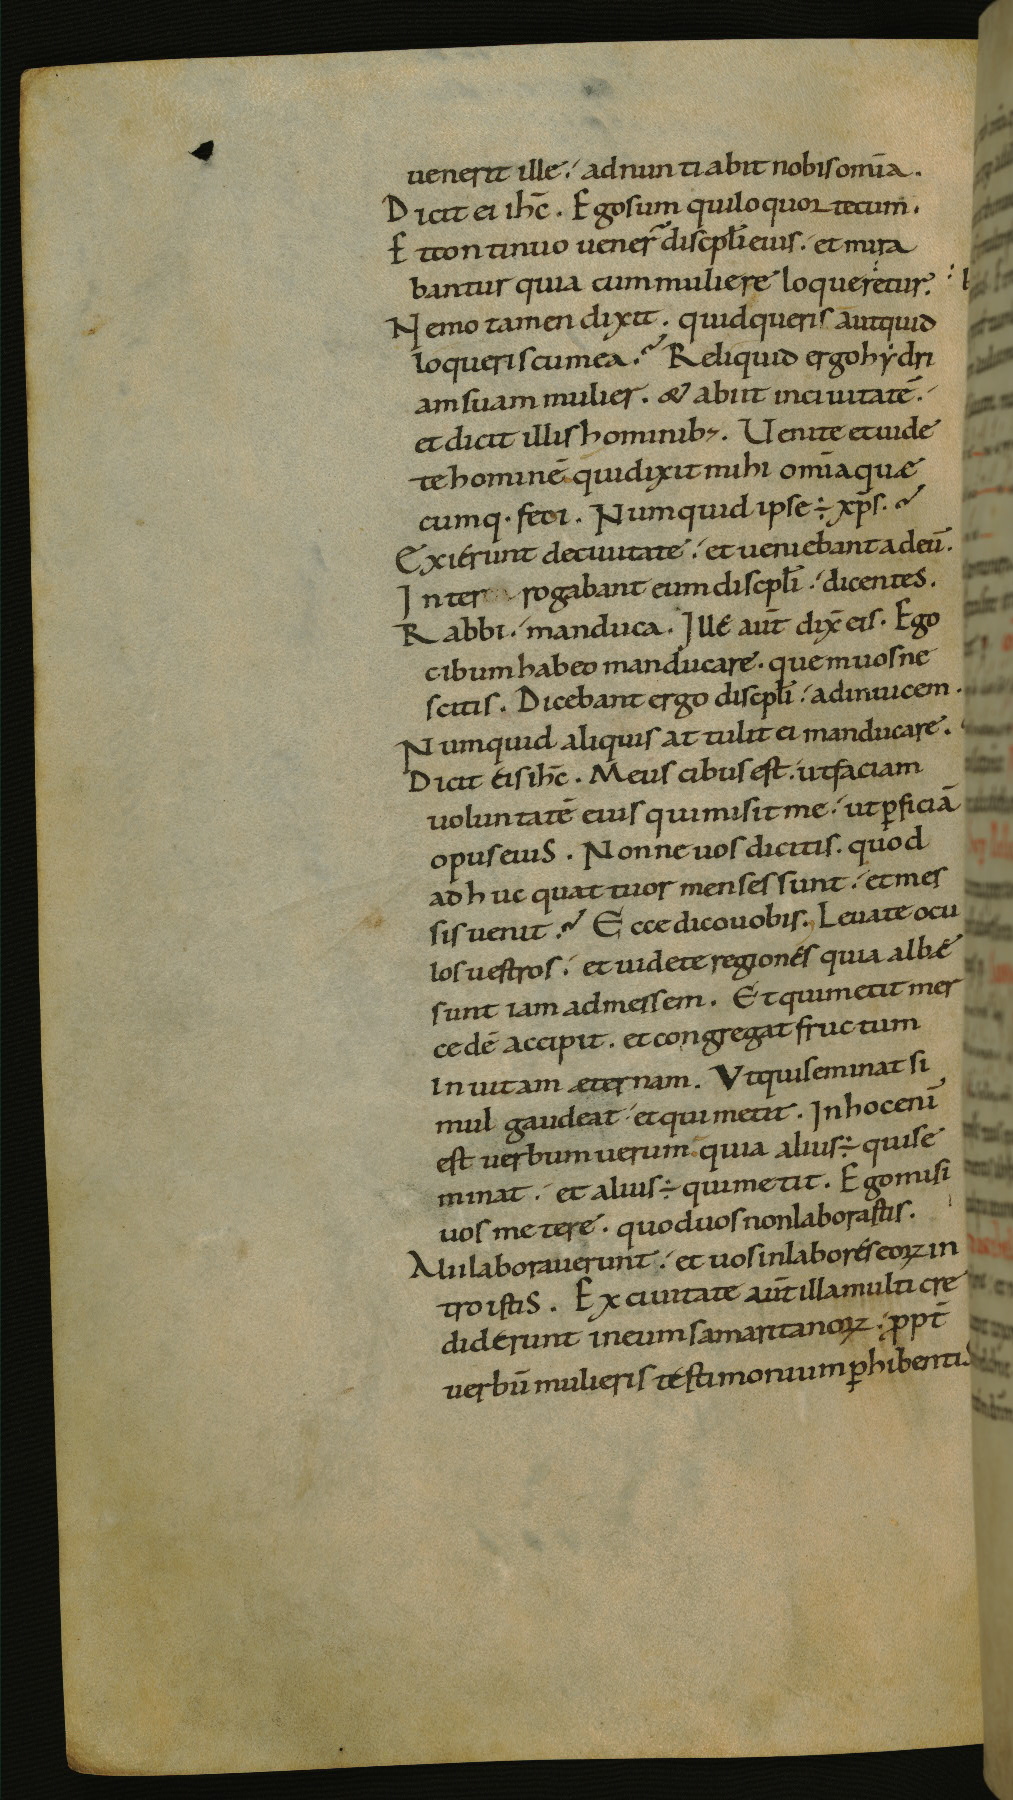 uenerit ille. adnuntiabit nobis om̄ia.
Dicit ei ih̄c. Ego sum qui loquor tecum.
Et continuo uener̄ discpl̄i eius. et mira
bantur quia cum muliere loqueretur.
Nemo tamen dixit. quid queris aut quid
loqueris cum ea. Reliquid ergo hydri
am suam mulier. & abiit in ciuitatē.
et dicit illis hominib;. Uenite et uide
te hominē qui dixit mihi om̄ia quæ
cumq. feci. Numquid ipse ÷ xp̄s.
Exierunt de ciuitate. et ueniebant ad eū.
Inter rogabant eum discpl̄i. dicentes.
Rabbi. manduca. Ille aūt dix̄ eis. Ego
cibum habeo manducare. quem uos ne
scitis. Dicebant ergo discpl̄i. adinuicem.
Numquid aliquis attulit ei manducare.
Dicit eis ih̄c. Meus cibus est. ut faciam
uoluntatē eius qui misit me. ut ꝑficiā
opus eius. Nonne uos dicitis. quod
adhuc quattuor menses sunt. et mes
sis uenit. Ecce dico uobis. Leuate ocu
los uestros. et uidete regiones quia albæ
sunt iam ad messem. Et qui metit mer
cedē accipit. et congregat fructum
in uitam æternam. Ut qui seminat si
mul gaudeat et qui metit. In hoc enī
est uerbum uerum quia alius ÷ qui se
minat. et alius ÷ qui metit. Ego misi
uos metere. quod uos non laborastis.
Alii laborauerunt. et uos in labores eoꝝ in
troistis. Ex ciuitate aūt illa multi cre
diderunt in eum samaritanoꝝ. ꝓpt̄
uerbū mulieris testimonium ꝑhibentis